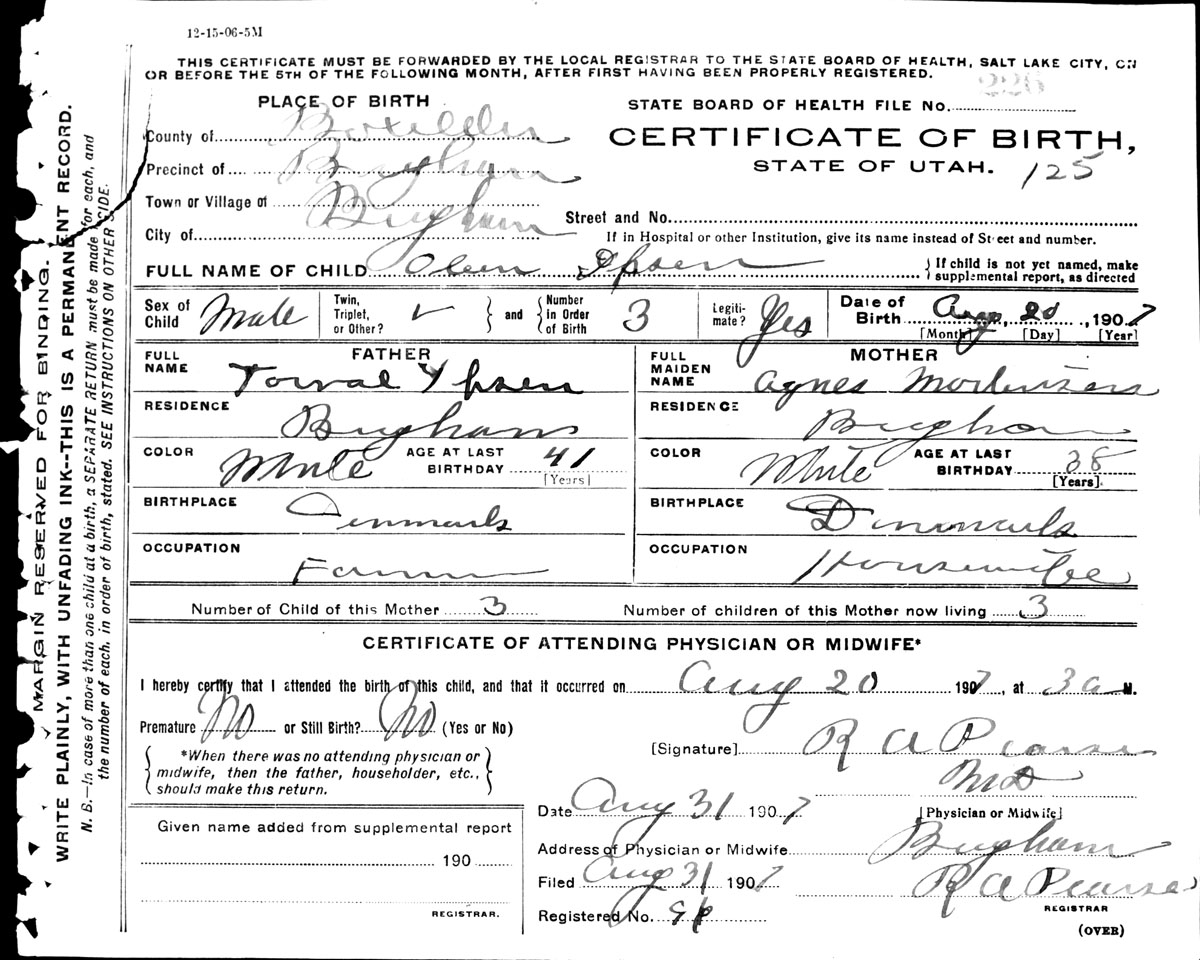 12-15-06-5M
THIS CERTIFICATE MUST BE FORWARDED BY THE LOCAL REGISTRAR TO THE STATE BOARD OF HEALTH, SALT LAKE CITY, ON
OR BEFORE THE 5TH OF THE FOLLOWING MONTH, AFTER FIRST HAVING BEEN PROPERLY REGISTERED.
226
PLACE OF BIRTH
STATE BOARD OF HEALTH FILE No.
County of Boxelder
CERTIFICATE OF BIRTH,
Precinct of Brigham
STATE OF UTAH. 125
Town or Village of
City of Brigham
Street and No.
If in Hospital or other Institution, give its name instead of Street and number.
FULL NAME OF CHILD Olean Ipsen
If child is not yet named, make supplemental report, as directed
Sex of Child Male
Twin, Triplet, or Other?
and
Number in Order of Birth 3
Legitimate? Yes
Date of Birth Aug, 20, 1907
[Month] [Day] [Year]
FATHER
FULL NAME Torval Ypsen
RESIDENCE Brigham
COLOR White AGE AT LAST BIRTHDAY 41
[Years]
BIRTHPLACE Denmark
OCCUPATION Farmer
MOTHER
FULL MAIDEN NAME Agnes Mortensen
RESIDENCE Brigham
COLOR White AGE AT LAST BIRTHDAY 38
[Years]
BIRTHPLACE Denmark
OCCUPATION Housewife
Number of Child of this Mother 3 Number of children of this Mother now living 3
CERTIFICATE OF ATTENDING PHYSICIAN OR MIDWIFE*
I hereby certify that I attended the birth of this child, and that it occurred on Aug 20 1907, at 3 a M.
Premature No or Still Birth? No (Yes or No)
*When there was no attending physician or
midwife, then the father, householder, etc.,
should make this return.
[Signature] R A Pearse
MD
[Physician or Midwife]
Date Aug 31 1907
Address of Physician or Midwife Brigham
Filed Aug 31 1907 R A Pearse
REGISTRAR
Registered No.
(OVER)
Given name added from supplemental report
190
REGISTRAR.
MARGIN RESERVED FOR BINDING.
WRITE PLAINLY, WITH UNFADING INK--THIS IS A PERMANENT RECORD.
N. B.—In case of more than one child at a birth, a SEPARATE RETURN must be made for each, and
the number of each, in order of birth, stated. SEE INSTRUCTIONS ON OTHER SIDE.